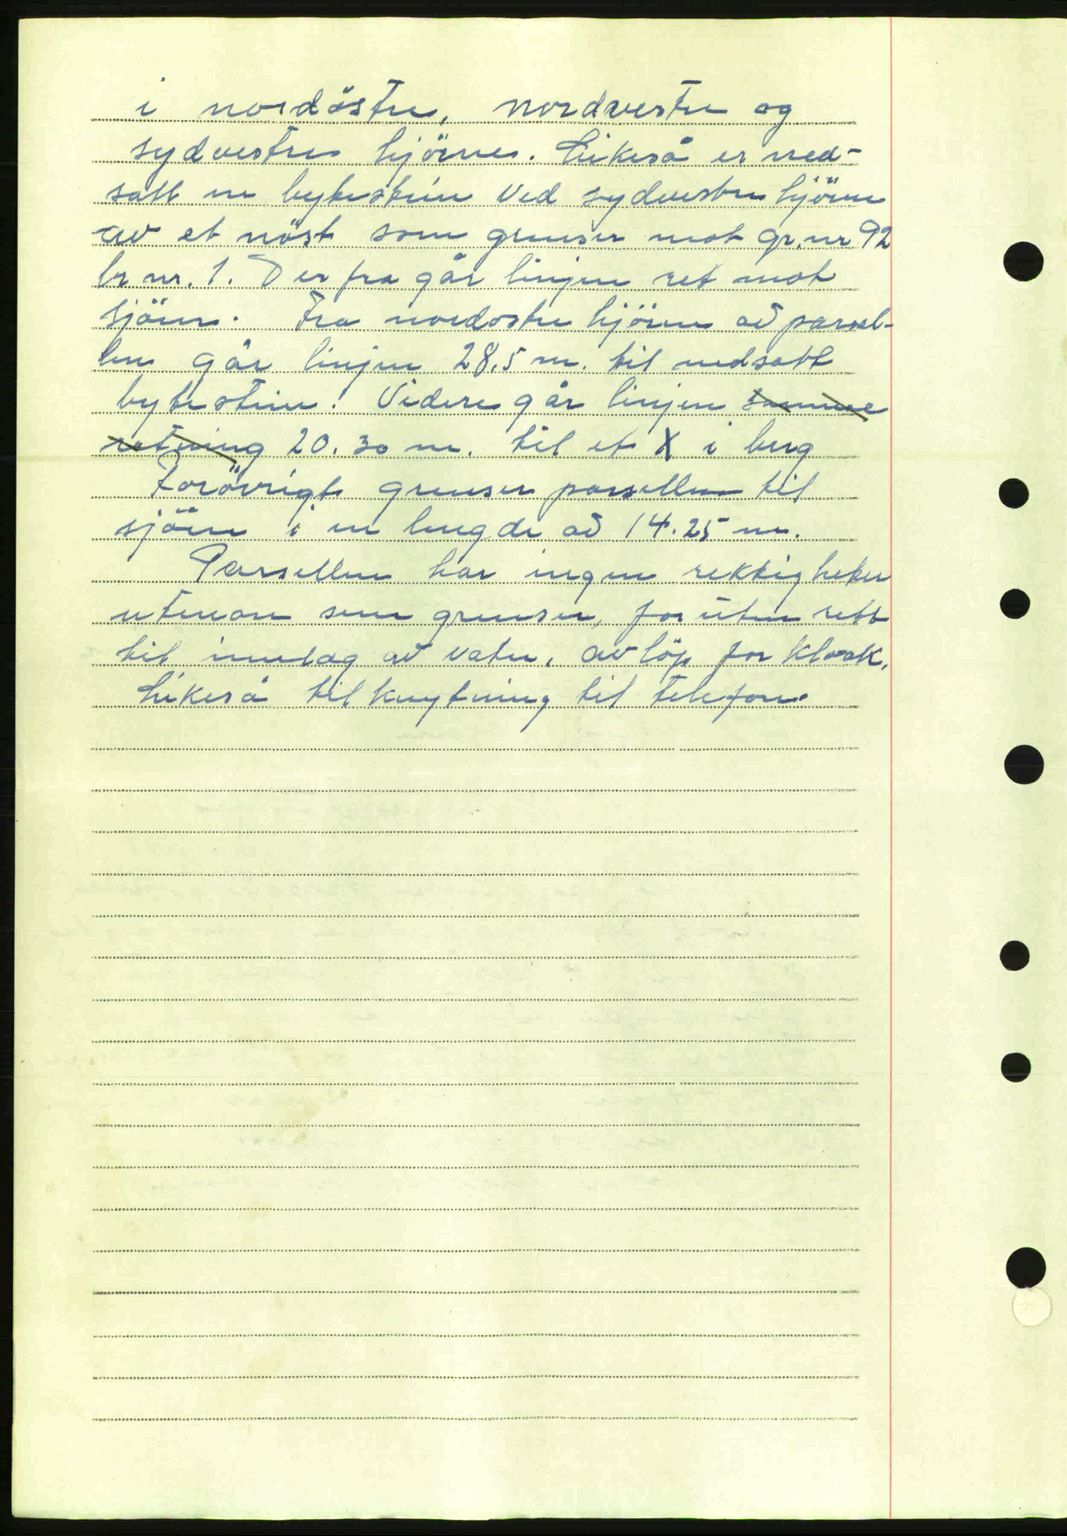 i nordöstre, nordvestre og
sydvestre hjörne. Likeså er ned-
satt en bytestein ved sydvestre hjörne
av et nöst som grenser mot gr.nr 92
br nr. 1. Der fra går linjen ret mot
sjöen. Fra nordostre hjörne av parsel-
len går linjen 28.5 m. til nedsatt
bytestein. Videre går linjen samme
retning 20.30 m. til et X i berg
Forövrigt grenser parsellen til
sjöen i en lengde av 14.25 m.
Parsellen har ingen rettigheter
utenom sem grenser, foruten rett
til inntag av vatn, avlöp for kloak,
Likeså tilknytning til telefon.